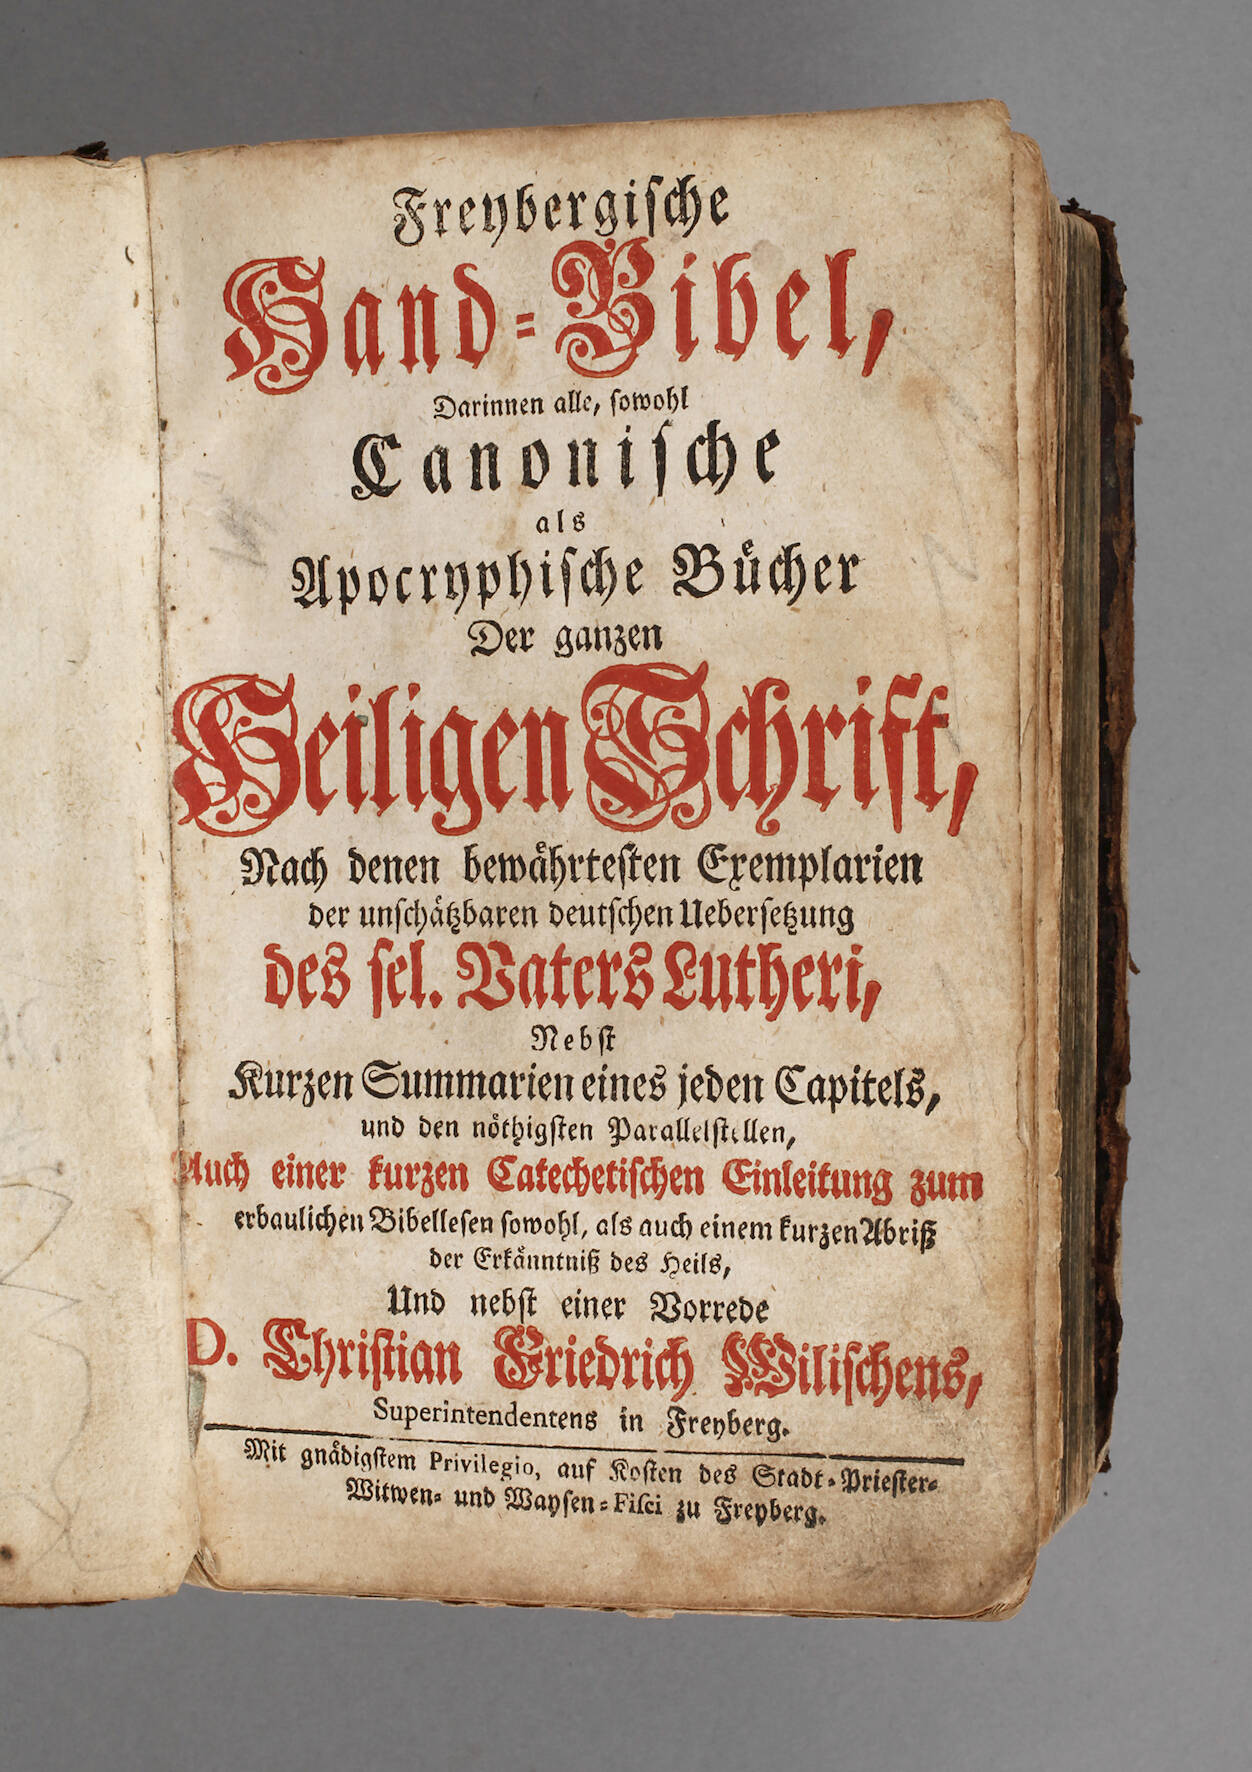 Freybergische
Hand-Bibel,
Darinnen alle, sowohl
Canonische
als
Apocryphische Bücher
Der ganzen
Heiligen Schrift,
Nach denen bewährtesten Exemplarien
der unschätzbaren deutschen Uebersetzung
des sel. Vaters Lutheri,
Nebst
Kurzen Summarien eines jeden Capitels,
und den nöthigsten Parallelstellen,
Auch einer kurzen Catechetischen Einleitung zum
erbaulichen Bibellesen sowohl, als auch einem kurzen Abriß
der Erkänntniß des Heils,
Und nebst einer Vorrede
D. Christian Friedrich Wilischens,
Superintendentens in Freyberg.
Mit gnädigstem Privilegio, auf Kosten des Stadt-Priester-
Witwen- und Waysen-Fisci zu Freyberg.